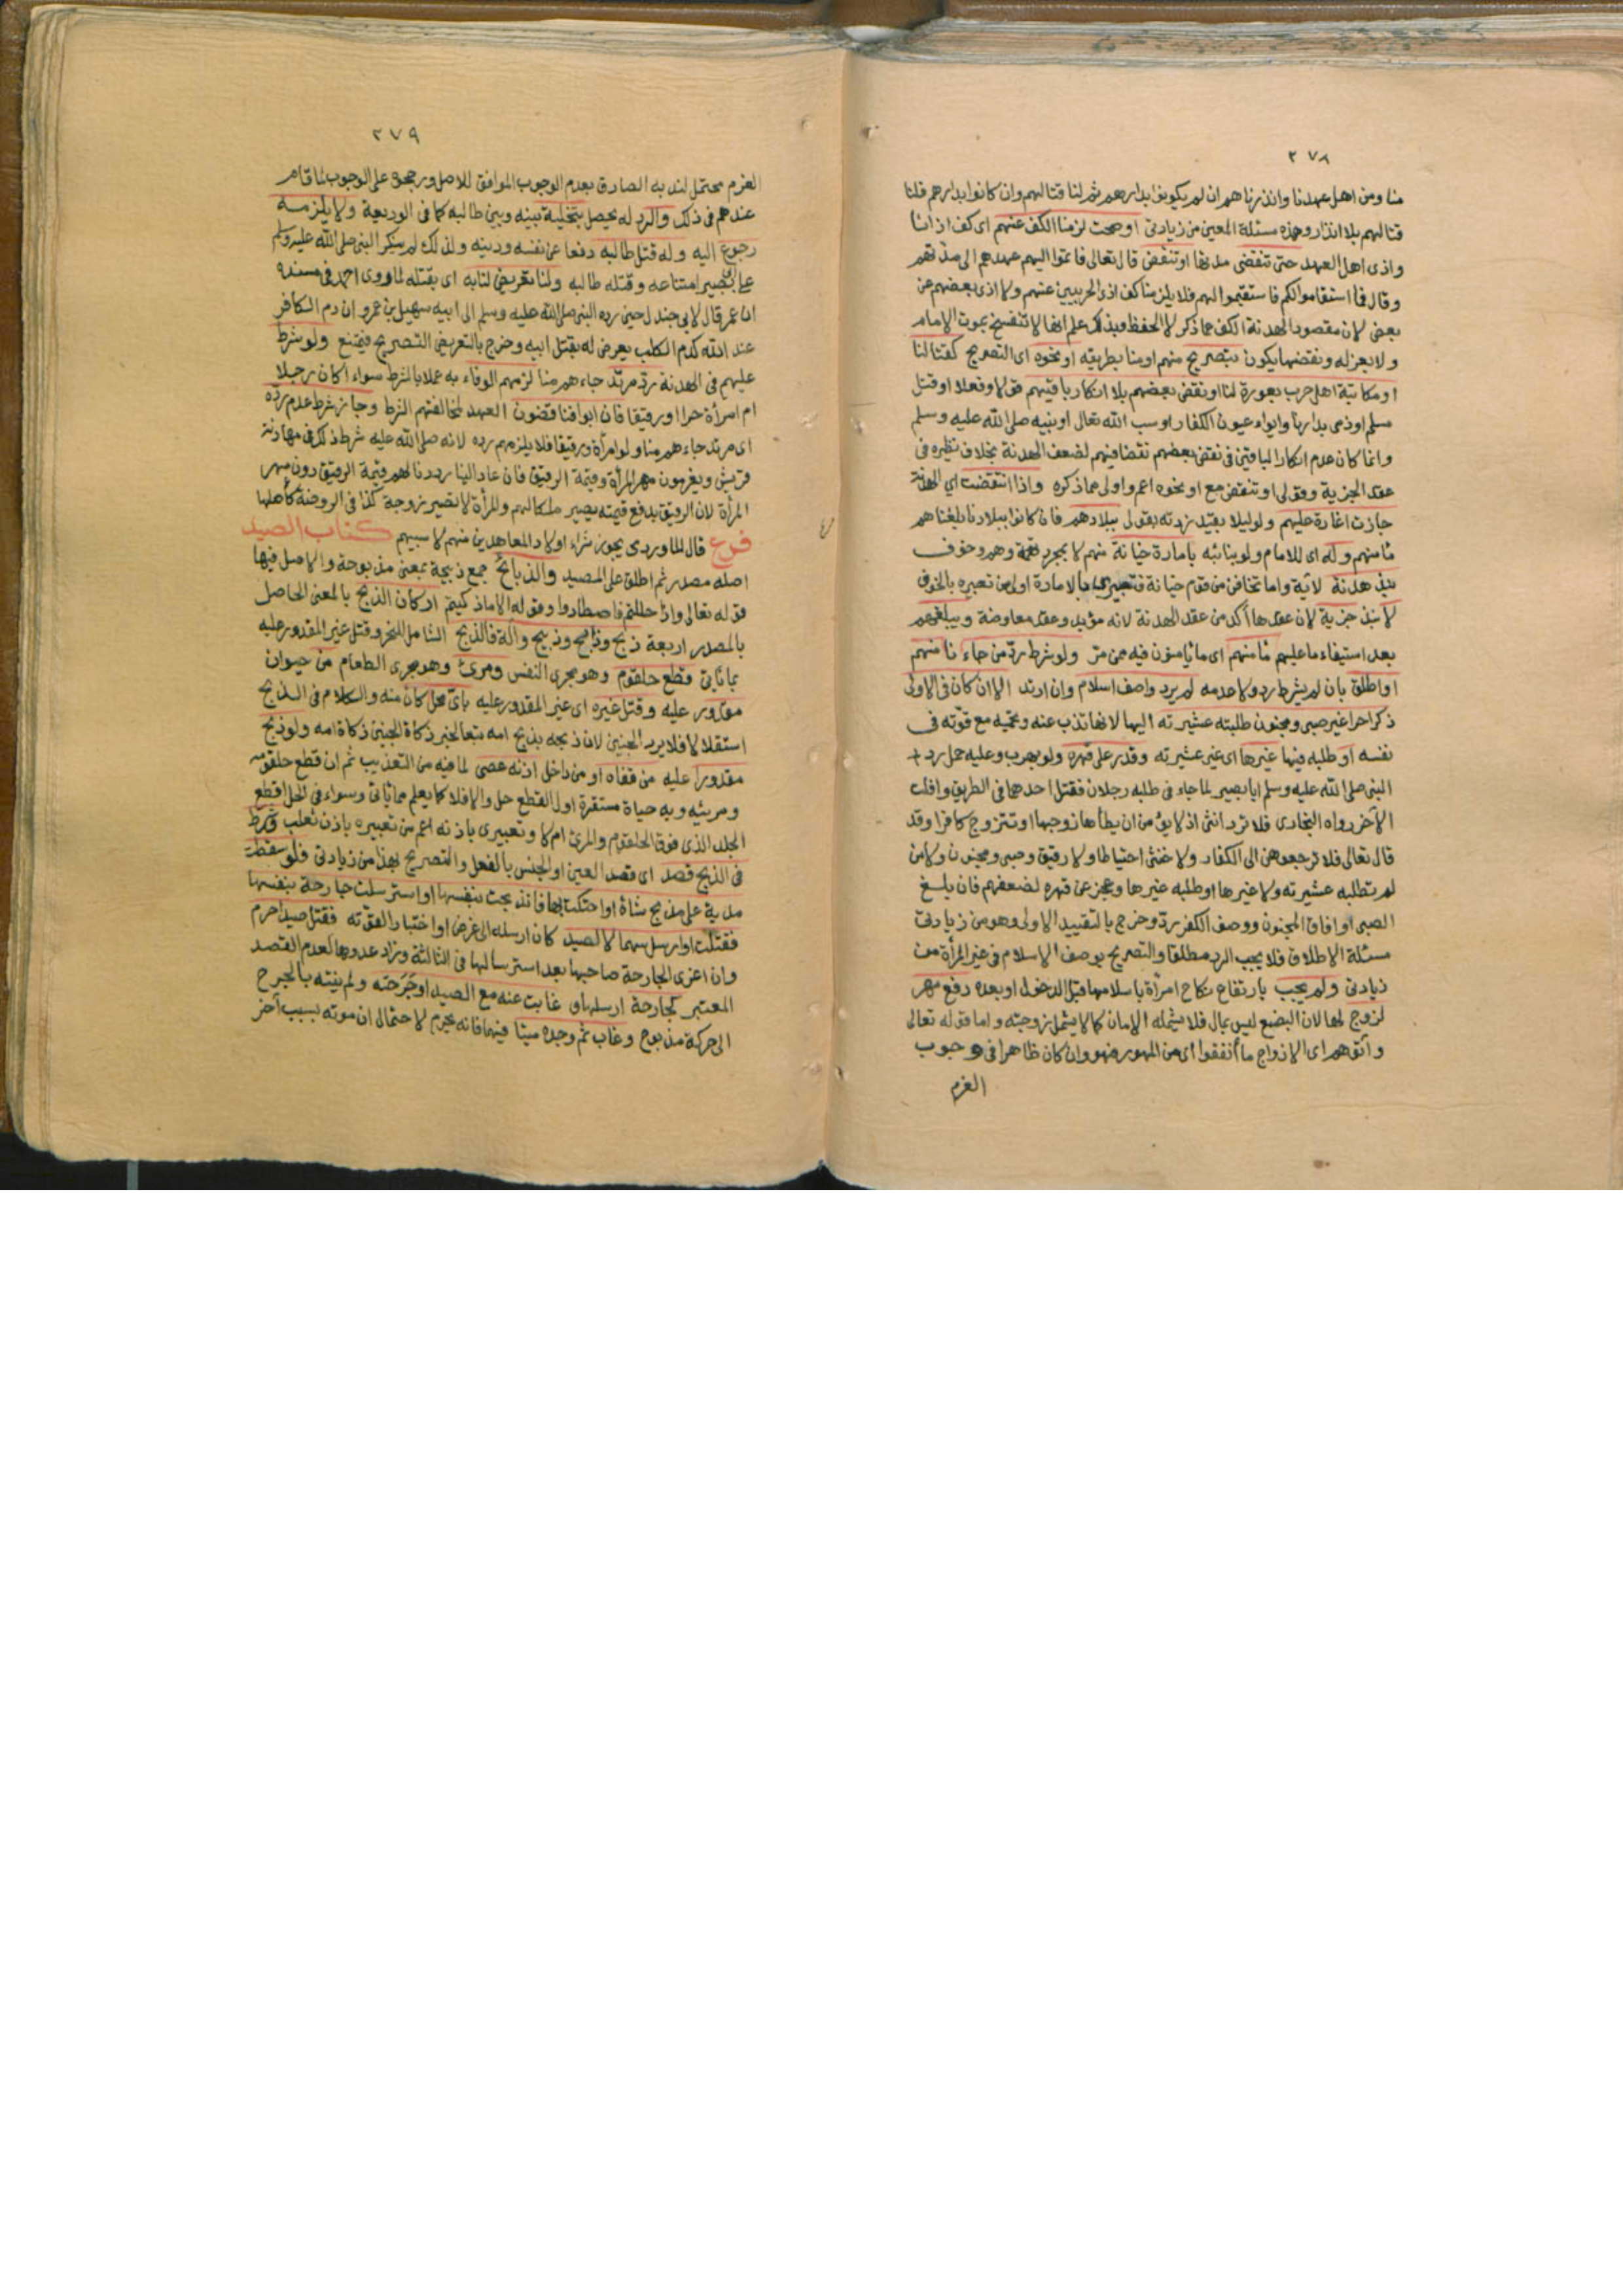 ٢٧٨
منا ومن اهل عهدنا وانذرناهم ان لم يكونوا بدارهم ثم لنا قتالهم وان كانوا بدارهم فلنا
قتالهم بلا انذار وهذه مسئلة المعين من زيادتى او صحت لزمنا الكف عنهم اى كف اذانا
واذى اهل العهد حتى تنقضى مدتها او تنقض قال تعالى فاتموا اليهم عهدهم الى مدتهم
وقال فما استقاموا لكم فاستقيموا لهم فلا يلزمنا كف اذى الحربيين عنهم ولا اذى بعضهم عن
بعض لان مقصود الهدنة الكف عما ذكر لا الحفظ وبذلك علم انها لا تنفسخ بموت الامام
ولا بعزله ونقضها يكون بتصريح منهم او منا بطريقه او نحوه اى التصريح كقتالنا
او مكاتبة اهل حرب بعورة لنا او نقض بعضهم بلا انكار باقيهم قولا وفعلا او قتل
مسلم اوذمى بدارنا وايواء عيون الكفار او سب الله تعالى او نبيه صلى الله عليه وسلم
وانما كان عدم انكار الباقين فى نقض بعضهم نقضا فيهم لضعف الهدنة بخلاف نظيره فى
عقد الجزية وقولى او تنقض مع او نحوه اعم واولى مما ذكره واذا انتقضت اي الهدنة
جازت اغارة عليهم ولو ليلا بقيد زدته بقولى ببلادهم فان كانوا ببلادنا بلغناهم
مأمنهم وله اى للامام ولو بنائبه بامارة خيانة منهم لا بمجرد تهمة وهم وخوف
نبذ هدنة لآية واما تخافن من قوم خيانة فتعبيرى بالامارة اولى من تعبيره بالخوف
لا نبذ جزية لان عقدها آكد من عقد الهدنة لانه مؤبد وعقد معاوضة ويبلغهم
بعد استيفاء ما عليهم مأمنهم اى ما يامنون فيه ممن مر ولو شرط رد من جاءنا منهم
او اطلق بان لم يشرط رد ولا عدمه لم يرد واصف اسلام وان ارتد الا ان كان فى الاولى
ذكرا حرا غير صبى ومجنون طلبته عشيرته اليها لانها تذب عنه وتحميه مع قوته فى
نفسه او طلبه فيها غيرها اى غير عشيرته وقدر على قهره ولو بهرب وعليه حمل رد
النبى صلى الله عليه وسلم ابا بصير لما جاء فى طلبه رجلان فقتل احدهما فى الطريق وافلت
الآخر رواه البخارى فلا ترد انثى اذ لا يؤمن ان يطأها زوجها او تتزوج كافرا وقد
قال تعالى فلا ترجعوهن الى الكفار ولا خنثى احتياطا ولا رقيق وصبى ومجنون ولا من
لم تطلبه عشيرته ولا غيرها او طلبه غيرها وعجز عن قهره لضعفهم فان بلغ
الصبى او افاق المجنون ووصف الكفر رد وخرج بالتقييد الاولى وهو من زيادتى
مسئلة الاطلاق فلا يجب الرد مطلقا والتصريح بوصف الاسلام فى غير المرأة من
زيادتى ولم يجب بارتفاع نكاح امرأة باسلامها قبل الدخول او بعده دفع مهر
لزوج لها لان البضع ليس بمال فلا يشمله الامان كما لا يشمل زوجته واما قوله تعالى
وآتوهم اى الازواج ما أنفقوا اى من المهور فهو وان كان ظاهرا فى وجوب
الغرم
٢٧٩
الغرم محتمل لندبه الصادق بعدم الوجوب الموافق للاصل ورجحوه على الوجوب لما قام
عندهم فى ذلك والرد له يحصل بتخلية بينه وبين طالبه كما فى الوديعة ولا يلزمه
رجوع اليه وله قتل طالبه دفعا عن نفسه ودينه ولذلك لم ينكر النبى صلى الله عليه وسلم
على ابى بصير امتناعه وقتله طالبه ولنا تعريض لنا به اى بقتله لما روى احمد فى مسنده
ان عمر قال لابى جندل حين رده النبى صلى الله عليه وسلم الى ابيه سهيل بن عمرو ان دم الكافر
عند الله كدم الكلب يعرض له بقتل ابيه وخرج بالتعريض التصريح فيمتنع ولو شرط
عليهم فى الهدنة رد مرتد جاءهم منا لزمهم الوفاء به عملا بالشرط سواء اكان رجلا
ام امرأة حرا او رقيقا فان ابوا فناقضون العهد لمخالفتهم الشرط وجاز شرط عدم رده
اى مرتد جاءهم منا ولو امرأة ورقيقا فلا يلزمهم رده لانه صلى الله عليه شرط ذلك فى مهادنة
قريش ويغرمون مهر المرأة وقيمة الرقيق فان عاد الينا رددنا لهم قيمة الرقيق دون مهر
المرأة لان الرقيق بدفع قيمته يصير ملكا لهم والمرأة لا تصير زوجة كذا فى الروضة كأصلها
فرع قال الماوردى يجوز شراء اولاد المعاهدين منهم لا سبيهم كتاب الصيد
اصله مصدر ثم اطلق على المصيد والذبائح جمع ذبيحة بمعنى مذبوحة والاصل فيها
قوله تعالى واذا حللتم فاصطادوا وقوله الا ما ذكيتم اركان الذبح بالمعنى الحاصل
بالمصدر اربعة ذبح وذابح وذبيح وآلة فالذبح الشامل للنحر وقتل غير المقدور عليه
بما يأتى قطع حلقوم وهو مجرى النفس ومرئ وهو مجرى الطعام من حيوان
مقدور عليه وقتل غيره اى غير المقدور عليه باى محل كان منه والكلام فى الذبح
استقلالا فلا يرد الجنين لان ذبحه بذبح امه تبعا لخبر ذكاة الجنين ذكاة امه ولو ذبح
مقدورا عليه من قفاه او من داخل اذنه عصى لما فيه من التعذيب ثم ان قطع حلقومه
ومريئه وبه حياة مستقرة اول القطع حل والا فلا كما يعلم مما يأتى وسواء فى الحل اقطع
الجلد الذى فوق الحلقوم والمرئ ام لا وتعبيرى باذنه اعم من تعبيره باذن ثعلب وشرط
فى الذبح قصد اى قصد العين او الجنس بالفعل والتصريح بهذا من زيادتى فلو سقطت
مدية على مذبح شاة او احتكت بها فانذبحت بنفسها او استرسلت جارحة بنفسها
فقتلت او ارسل سهما لا لصيد كان ارسله الى غرض او اختبارا لقوته فقتل صيدا حرم
وان اغرى الجارحة صاحبها بعد استرسالها فى الثالثة وزاد عدوها لعدم القصد
المعتبر كجارحة ارسلها و غابت عنه مع الصيد او جرحته ولم ينته بالجرح
الى حركة مذبوح وغاب ثم وجده ميتا فيهما فانه يحرم لاحتمال ان موته بسبب آخر